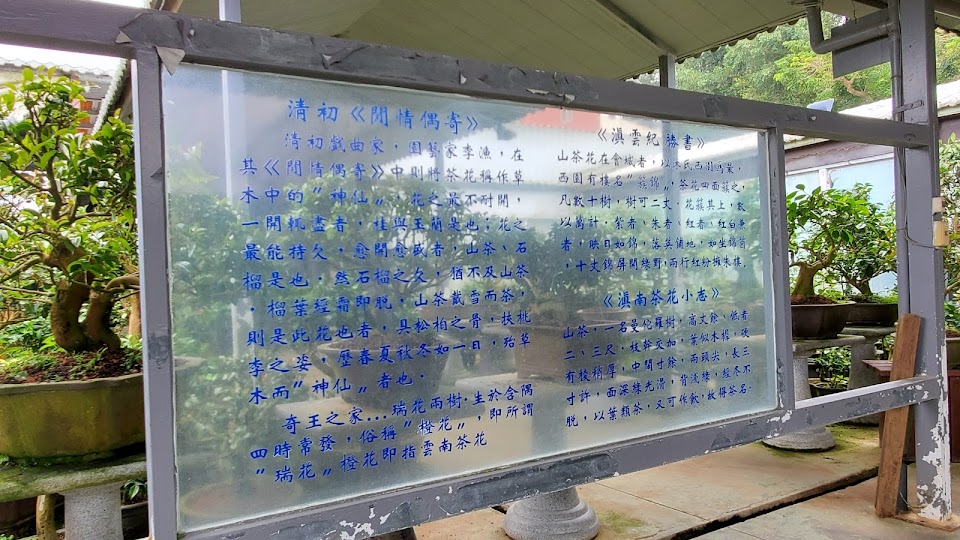 清初《閒情偶寄》
清初戲曲家，園藝家李漁，在
其《閒情偶寄》中則將茶花稱作草
木中的〞神仙〞，花之最不耐開，
一開輒盡者，桂與玉蘭是也；花之
最能持久，愈開愈或者，山茶、石
榴是也，然石榴之久，猶不及山茶
．榴葉經霜即脫，山茶戴雪而茶，
則是此花也者，具松柏之骨，挾桃
李之姿，歷春夏秋冬如一日，殆草
木而〞神仙〞者也．
奇王之家...瑞花兩樹．生於含隅
四時常發，俗稱〞橙花〞，即所謂
〞瑞花〞橙花即指雲南茶花
《滇雲紀勝書》
山茶花在會城者，以沐氏西園為最，
西園有樓名〞簇錦〞，茶花四面簇之，
凡數十樹，樹可二丈．花簇其上，數
以萬計，紫者，朱者，紅者，紅白兼
者，映日如錦，落英鋪地，如坐錦茵
，十丈錦屏開綠野，兩行紅粉擁朱樓．
《滇南茶花小志》
山茶，一名曼佗羅樹，高丈餘、低者
二、三尺，枝幹交加，葉似木樨，硬
有稜稍厚，中間寸餘，兩頭尖，長三
寸許，面深綠光滑，背淺綠，經冬不
脫，以葉類茶，又可作飲，故得茶名．